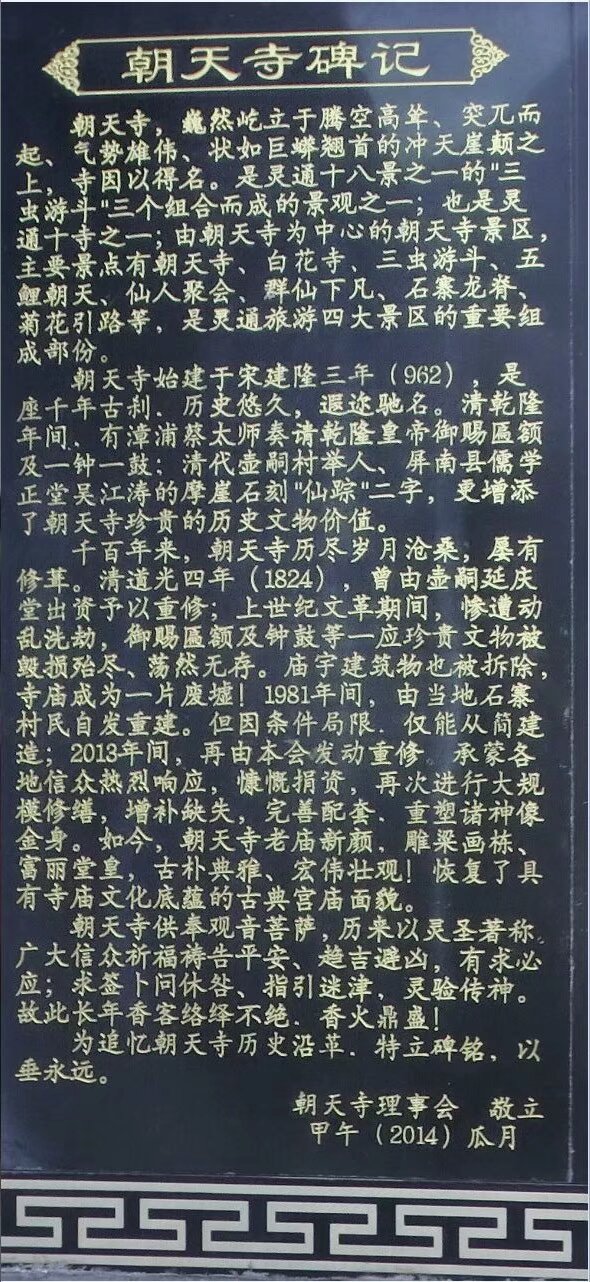 朝天寺碑记
朝天寺，巍然屹立于腾空高耸、突兀而
起、气势雄伟、状如巨蟒翘首的冲天崖颠之
上，寺因以得名。是灵通十八景之一的"三
虫游斗"三个组合而成的景观之一；也是灵
通十寺之一；由朝天寺为中心的朝天寺景区，
主要景点有朝天寺、白花寺、三虫游斗、五
鲤朝天、仙人聚会、群仙下凡、石寨龙脊、
菊花引路等，是灵通旅游四大景区的重要组
成部份。
朝天寺始建于宋建隆三年（962），是
座千年古刹．历史悠久，遐迩驰名。清乾隆
年间．有漳浦蔡太师奏请乾隆皇帝御赐匾额
及一钟一鼓；清代壶嗣村举人、屏南县儒学
正堂吴江涛的摩崖石刻"仙踪"二字，更增添
了朝天寺珍贵的历史文物价值。
千百年来，朝天寺历尽岁月沧桑，屡有
修葺。清道光四年（1824），曾由壶嗣延庆
堂出资予以重修；上世纪文革期间，惨遭动
乱洗劫，御赐匾额及钟鼓等一应珍贵文物被
毁损殆尽、荡然无存。庙宇建筑物也被拆除，
寺庙成为一片废墟！1981年间，由当地石寨
村民自发重建。但因条件局限．仅能从简建
造；2013年间，再由本会发动重修．承蒙各
地信众热烈响应，慷慨捐资，再次进行大规
模修缮，增补缺失，完善配套．重塑诸神像
金身。如今，朝天寺老庙新颜．雕梁画栋、
富丽堂皇，古朴典雅、宏伟壮观！恢复了具
有寺庙文化底蕴的古典宫庙面貌。
朝天寺供奉观音菩萨，历来以灵圣著称．
广大信众祈福祷告平安、趋吉避凶，有求必
应；求签卜问休咎、指引迷津，灵验传神。
故此长年香客络绎不绝．香火鼎盛！
为追忆朝天寺历史沿革．特立碑铭，以
垂永远。
朝天寺理事会　敬立
甲午（2014）瓜月